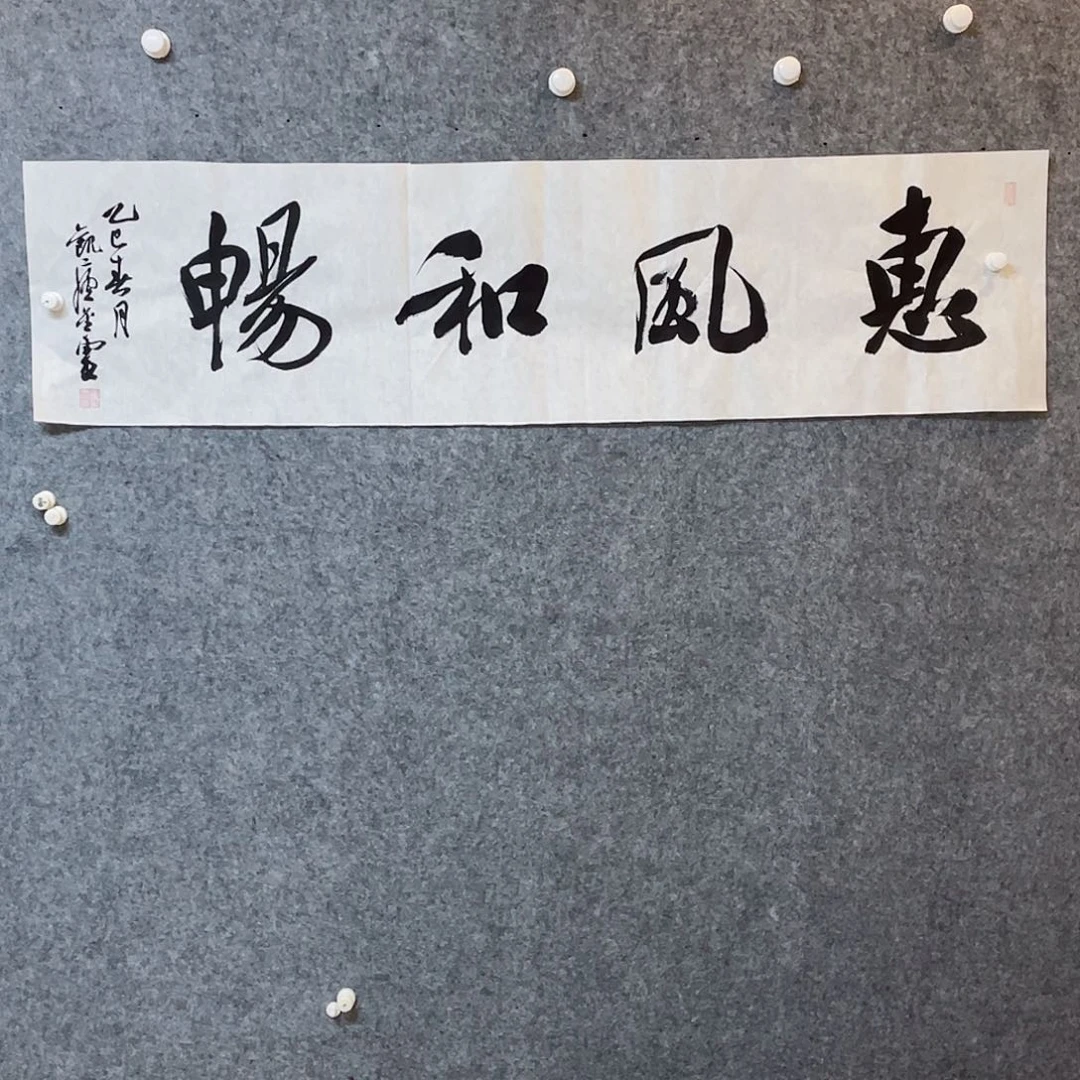 惠風和暢
乙巳春月